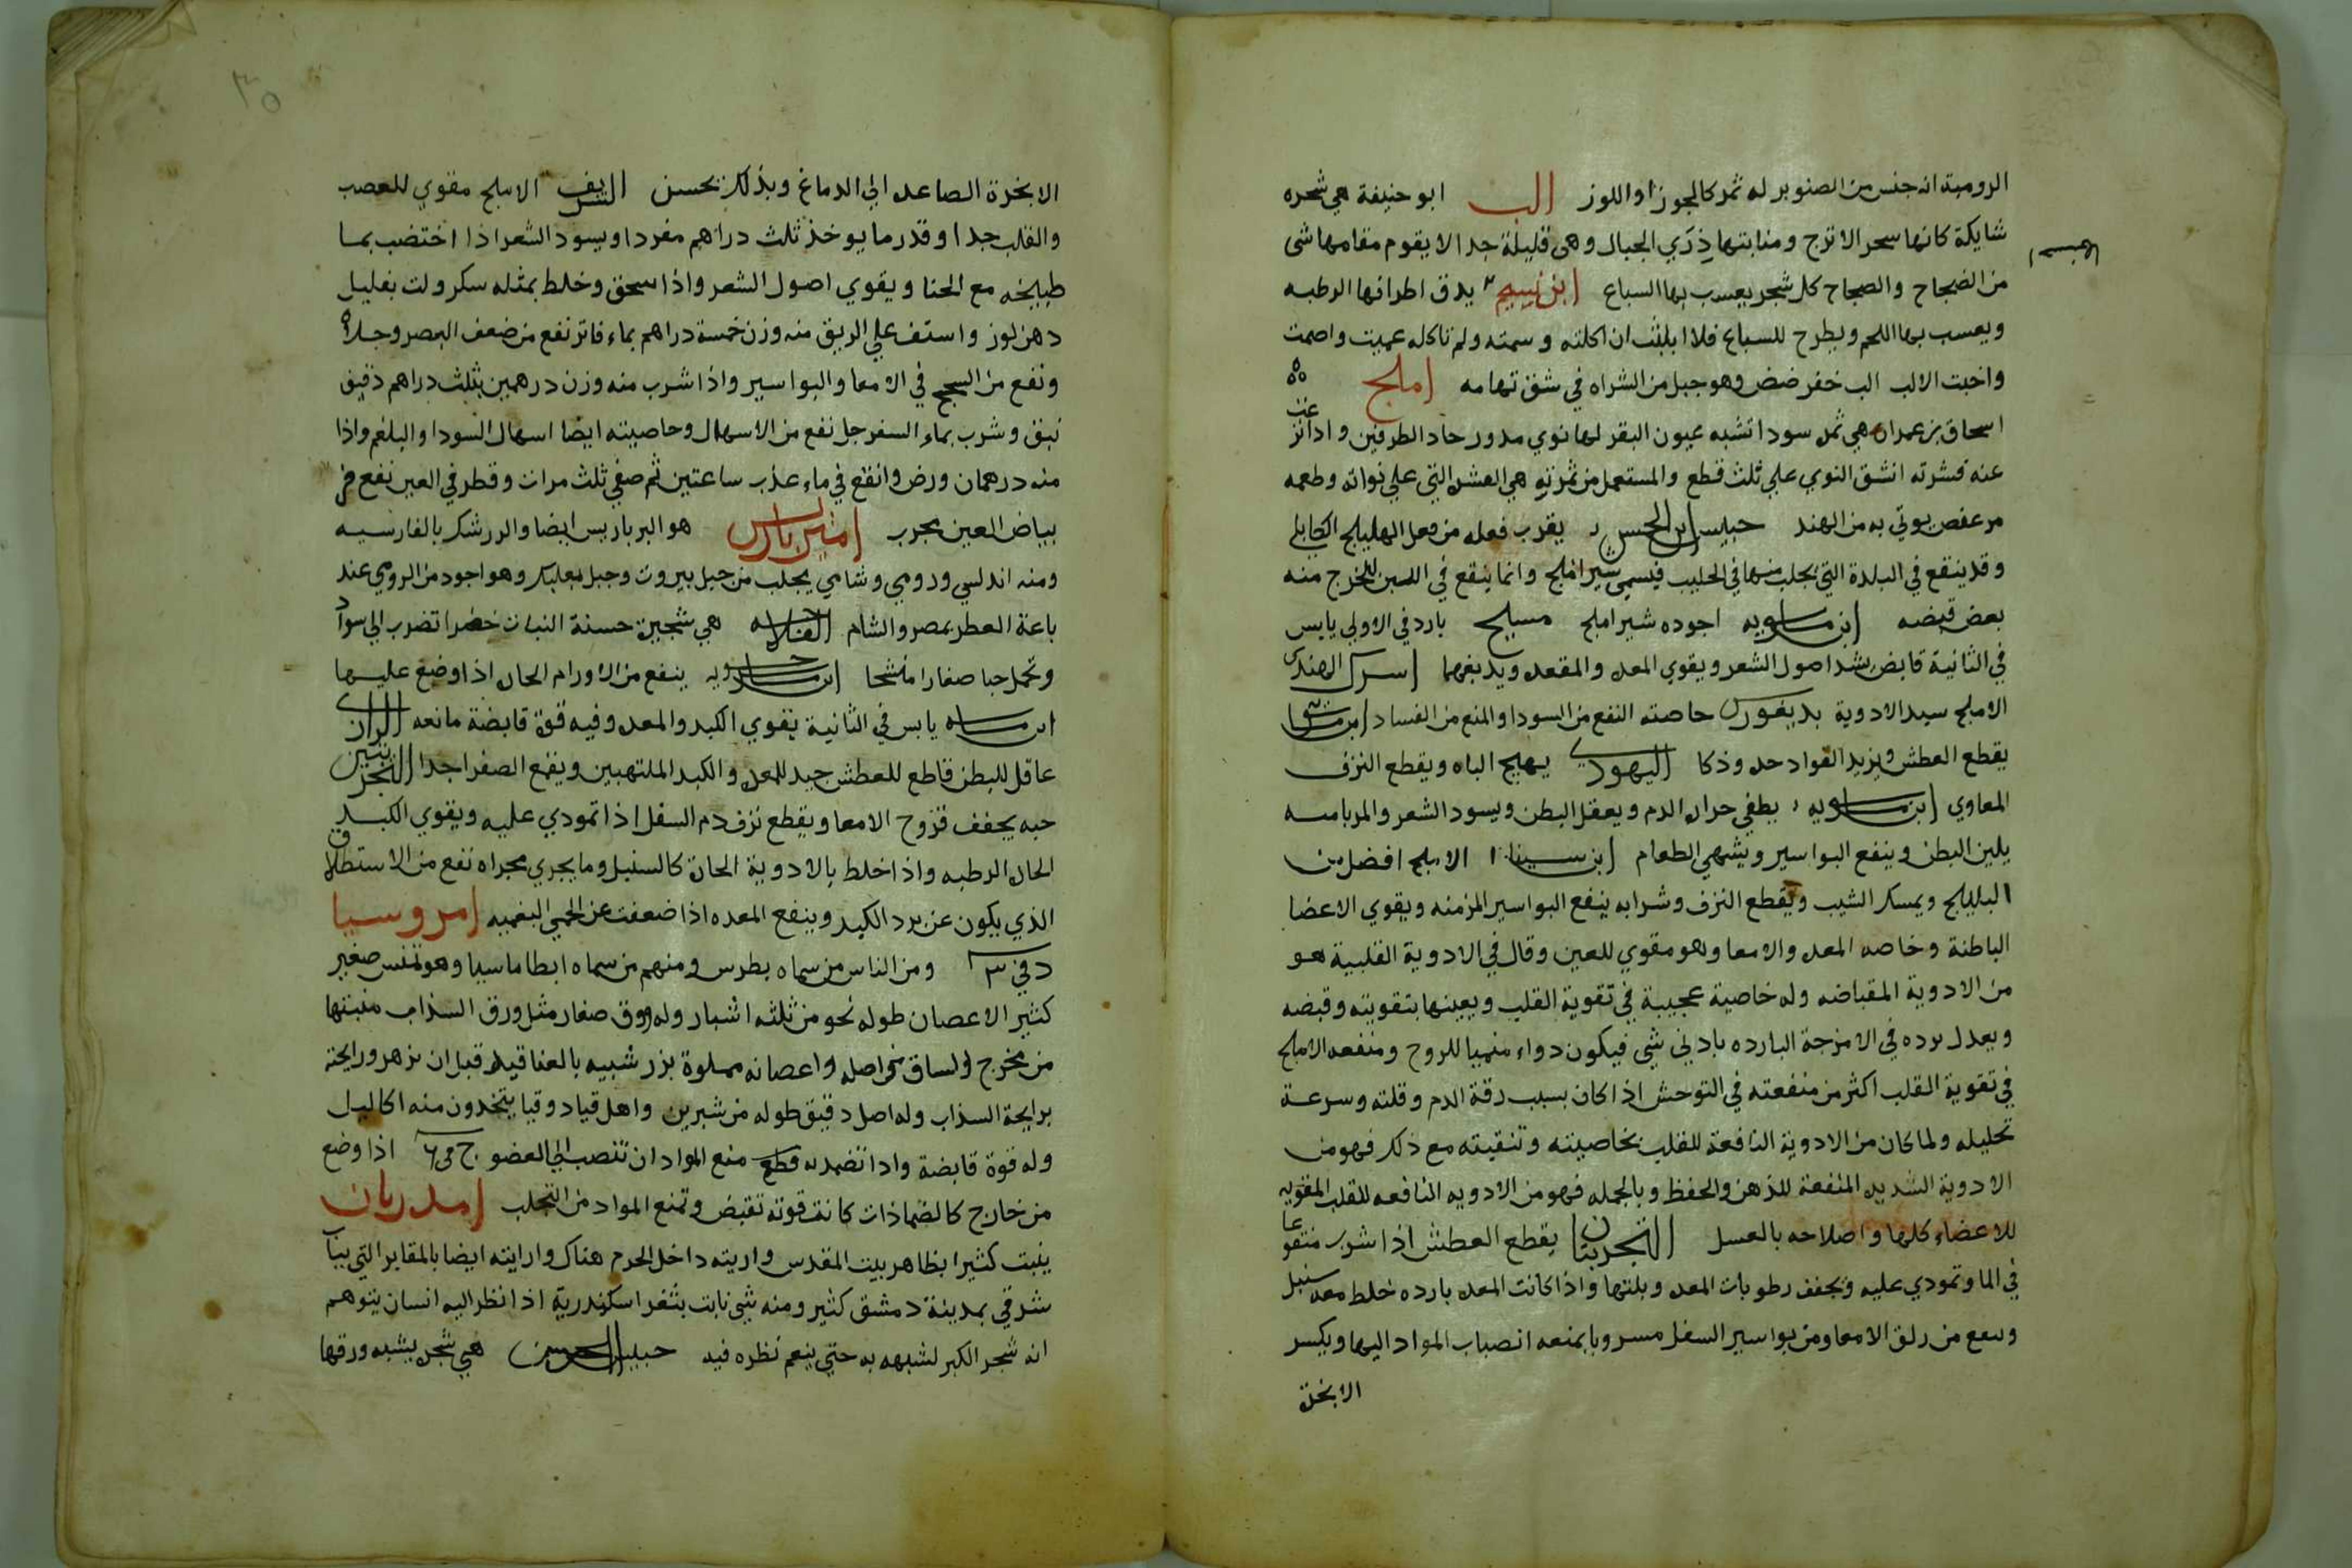 الرومية انه جنس من الصنوبر له ثمر كالجوز او اللوز الب ابو حنيفة هي شجره
شايكة كانها سحر الاترج ومنابتها ذري الجبال وهي قليلة جدا لا يقوم مقامها شى
من الضجاح والضجاح كل شجر يعسب بها السباع يدق اطرافها الرطبه
ويعسب بها اللحم ويطرح للسباع فلا ان اكلته وسمته ولم تاكله عميت واصمت
واخبت الالب الب خفرضض وهو جبل من الشراه في شق تهامه املج
اسحاق بن عمران هي ثمره سودا تشبه عيون البقر لها نوي مدور حاد الطرفين واذا
عنه قشرته انشق النوي علي ثلث قطع والمستعمل من ثمرته هي القشر التي علي نواته وطعمه
مر عفص يوتي به من الهند حبيس ابن الحسن يقرب فعله من فعل الهليلج الكابلي
وقد ينقع في البلدة التي يجلب منها في الحليب فيسمي شير املج وانما ينقع في اللبن ليخرج منه
بعض قبضه ابن ماسويه اجوده شير املج مسيح بارد في الاولي يابس
في الثانية قابض يشد اصول الشعر ويقوي المعده والمقعده ويدبغهما اسرك الهندي
الاملج سيد الادوية بديغورس خاصته النفع من السودا والمنع من الفساد
يقطع العطش ويزيد الفواد حده وذكا اليهودي يهيج الباه ويقطع النزف
المعاوي ابن ماسويه يطفي حراره الدم ويعقل البطن ويسود الشعر والمربا منه
يلين البطن وينفع البواسير ويشهي الطعام ابن سينا الاملج افضل من
البليلج ويمسك الشيب ويقطع النزف وشرابه ينفع البواسير المزمنه ويقوي الاعضا
الباطنة وخاصه المعده والامعا وهو مقوي للعين وقال في الادوية القلبية هو
من الادوية المقباضه وله خاصية عجيبة في تقوية القلب ويعينها بتقويته وقبضه
ويعدل برده في الامزجة البارده بادني شي فيكون دواء منميا للروح ومنفعه الاملج
في تقوية القلب اكثر من منفعته في التوحش اذا كان بسبب رقة الدم وقلته وسرعة
تحليله ولما كان من الادوية النافعة للقلب بخاصيته وتنقيته مع ذلك فهو من
الادوية الشديده المنفعة للذهن والحفظ وبالجمله فهو من الادويه النافعه للقلب المقويه
للاعضاء كلها واصلاحه بالعسل التجربتان يقطع العطش اذا شرب منقوعا
في الما وتمودي عليه ويجفف رطوبات المعده وبلتها واذا كانت المعده بارده خلط معه سنبل
وينفع من زلق الامعا ومن بواسير السفل مسروبا بمنعه انصباب المواد اليها ويكسر
الابخرة
الابخرة الصاعده الي الدماغ وبذلك يحسن الشريف الاملج مقوي للعصب
والقلب جدا وقدر ما يوخذ ثلث دراهم مفردا ويسود الشعر اذا اختضب بما
طبيخه مع الحنا ويقوي اصول الشعر واذا سحق وخلط بمثله سكر ولت بقليل
دهن لوز واستف علي الريق منه وزن خمسة دراهم بماء فاتر نفع من ضعف البصر وجلاه
ونفع من السجج في الامعا والبواسير واذا شرب منه وزن درهمين بثلث دراهم دقيق
نبق وشرب بماء السفرجل نفع من الاسهال وخاصيته ايضا اسهال السودا والبلغم واذا
منه درهمان ورض وانقع في ماء عذب ساعتين ثم صفي ثلث مرات وقطر في العين نفع من
بياض العين مجرب امير باريس هو البرباريس ايضا والزرشك بالفارسيه
ومنه اندلسي ورومي وشامي يجلب من جبل بيروت وجبل بعلبك وهو اجود من الرومي عند
باعة العطر بمصر والشام الفلاحه هي شجيرة حسنة النبات خضرا تضرب الي سواد
وتحمل حبا صغارا ابن ماسويه ينفع من الاورام الحاره اذا وضع عليها
ابن ماسه يابس في الثانية يقوي الكبد والمعده وفيه قوة قابضة مانعه الرازي
عاقل للبطن قاطع للعطش جيد للمعده والكبد الملتهبين ويقمع الصفرا جدا التجربتين
حبه يجفف قروح الامعا ويقطع نزف دم السفل اذا تمودي عليه ويقوي الكبد
الحاره الرطبه واذا خلط بالادوية الحاره كالسنبل وما يجري مجراه نفع من الاستطلاق
الذي يكون عن برد الكبد وينفع المعده اذا ضعفت عن الحمي البلغميه امروسيا
د في ٣ ومن الناس من سماه بطرس ومنهم من سماه ابطاماسيا وهو تمنس صغير
كثير الاعصان طوله نحو من ثلثه اشبار وله ورق صغار مثل ورق السذاب منبتها
من مخرج الساق من اصله واعصانه مملوة بزر شبيه بالعناقيد قبل ان يزهر ورايحته
برايحة السذاب وله اصل دقيق طوله من شبرين واهل قيادوقيا يتخذون منه اكاليل
وله قوة قابضة واذا تضمد به قطع منع المواد ان تنصب الي العضو ج في ٦ اذا وضع
من خارج كالضمادات كانت قوته تقبض وتمنع المواد من التحلب امدريان
ينبت كثيرا بظاهر بيت المقدس واريته داخل الحرم هناك ورايته ايضا بالمقابر التي بباب
شرقي بمدينة دمشق كثير ومنه شي نابت بثغر اسكندرية اذا نظر اليه انسان يتوهم
انه شجر الكبر لشبهه به حتي ينعم نظره فيه حبيس ابن الحسن هي شجره يشبه ورقها